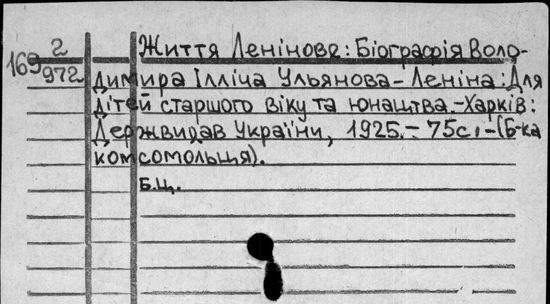 169 2/972
Життя Ленінове: Біографія Воло-
димира Ілліча Ульянова-Леніна: Для
дітей старшого віку та юнацтва.-Харків:
Держвидав України, 1925.- 75с.-(Б-ка
комсомольця).
Б.ц.